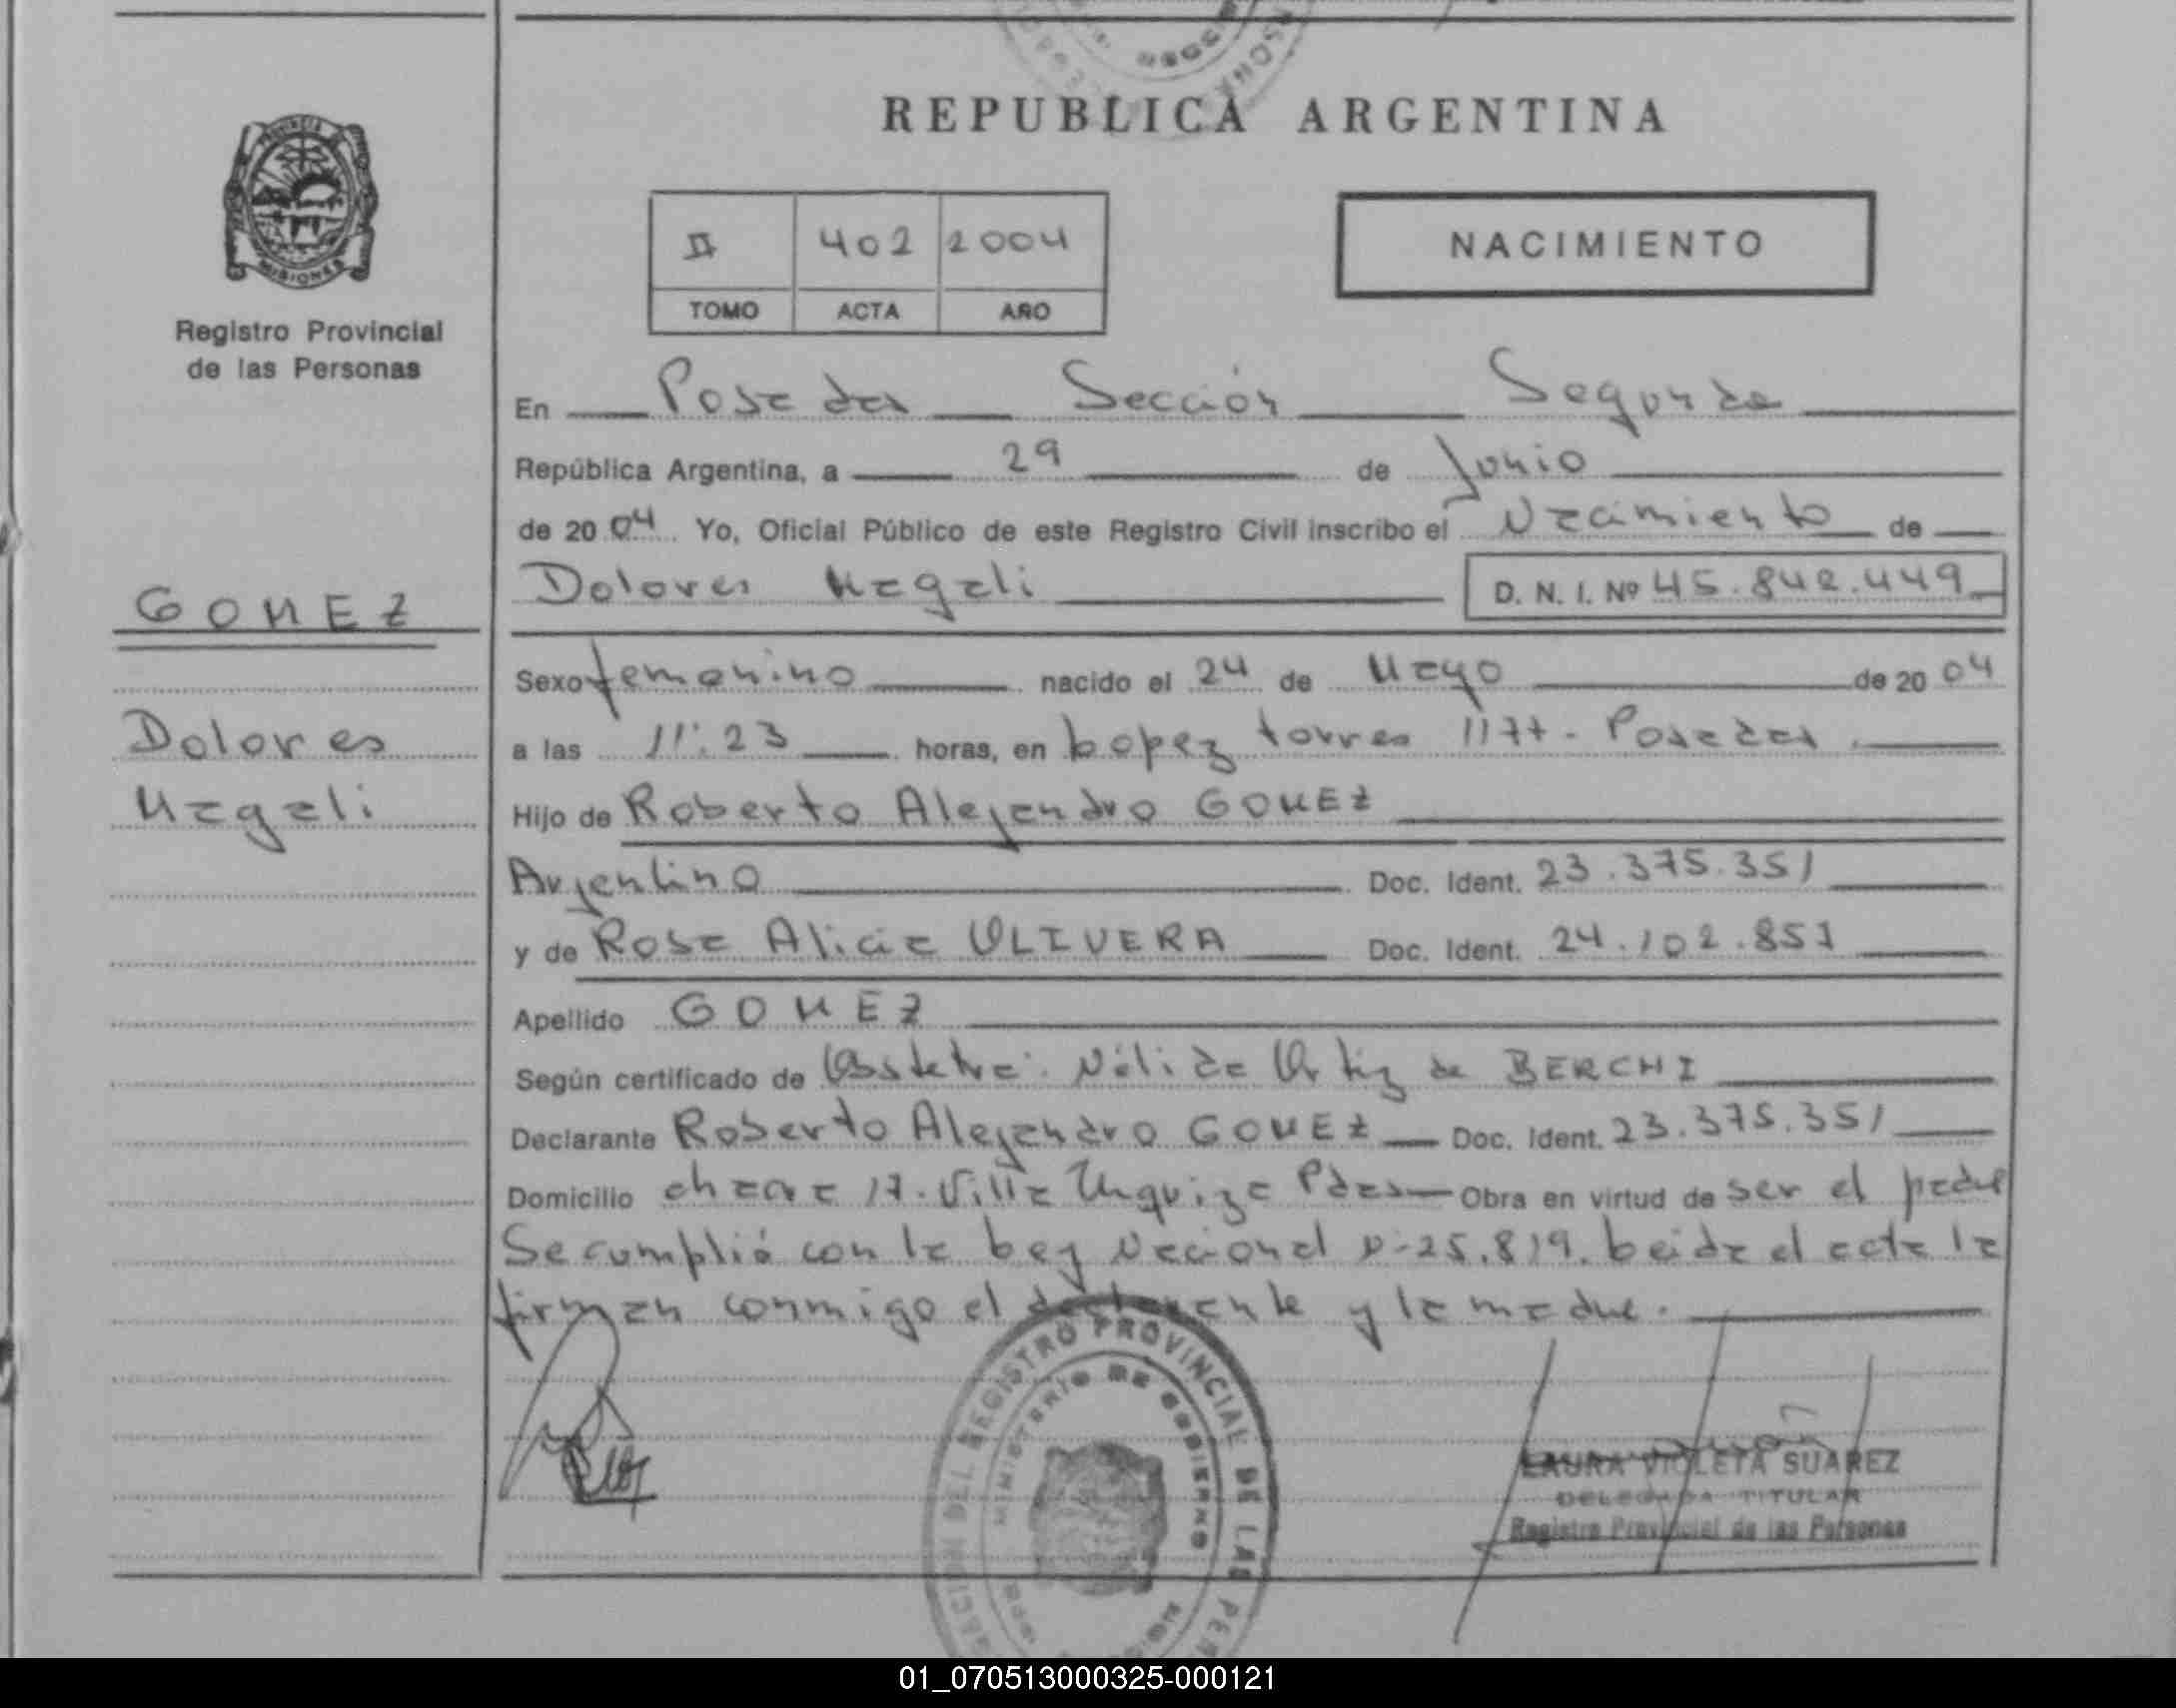 REPUBLICA ARGENTINA
PROVINCIA
MISIONES
Registro Provincial
de las Personas
II 402 2004
TOMO ACTA AÑO
NACIMIENTO
En Posadas Sección Segunda
República Argentina, a 29 de Junio
de 2004 Yo, Oficial Público de este Registro Civil inscribo el Nacimiento de
Dolores Magali D. N. I. Nº 45.842.449
GOMEZ
Dolores
Magali
Sexo femenino nacido el 24 de Mayo de 2004
a las 11:23 horas, en Lopez torres 1177 - Posadas
Hijo de Roberto Alejandro GOMEZ
Argentino Doc. Ident. 23.375.351
y de Rosa Alicia OLIVERA Doc. Ident. 24.102.851
Apellido GOMEZ
Según certificado de Obstetra: Nélida Ortiz de BERCHI
Declarante Roberto Alejandro GOMEZ Doc. Ident. 23.375.351
Domicilio chacra 17. Villa Urquiza Pdas Obra en virtud de ser el padre
Se cumplió con la Ley Nacional Nº 25.819. Leida el acta la
firman conmigo el declarante y la madre.
REGISTRO PROVINCIAL DE LAS
MINISTERIO DE GOBIERNO
LAURA VIOLETA SUAREZ
DELEGADA TITULAR
Registro Provincial de las Personas
01_070513000325-000121